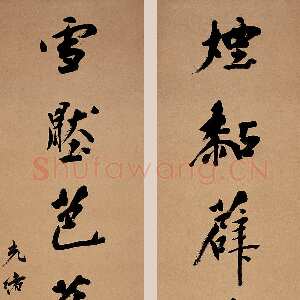 煙黏薜
雪壓芭
光緒
Shufawang.CN